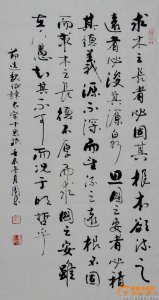 求木之長者必固其根本欲流之
遠者必浚其源泉思国之安者必積
其德義源不深而望流之遠根不固
而求木之長德不厚而思国之安雖
在下愚知其不可而况于明哲乎
節選魏徵諫太宗十思疏壬辰冬月